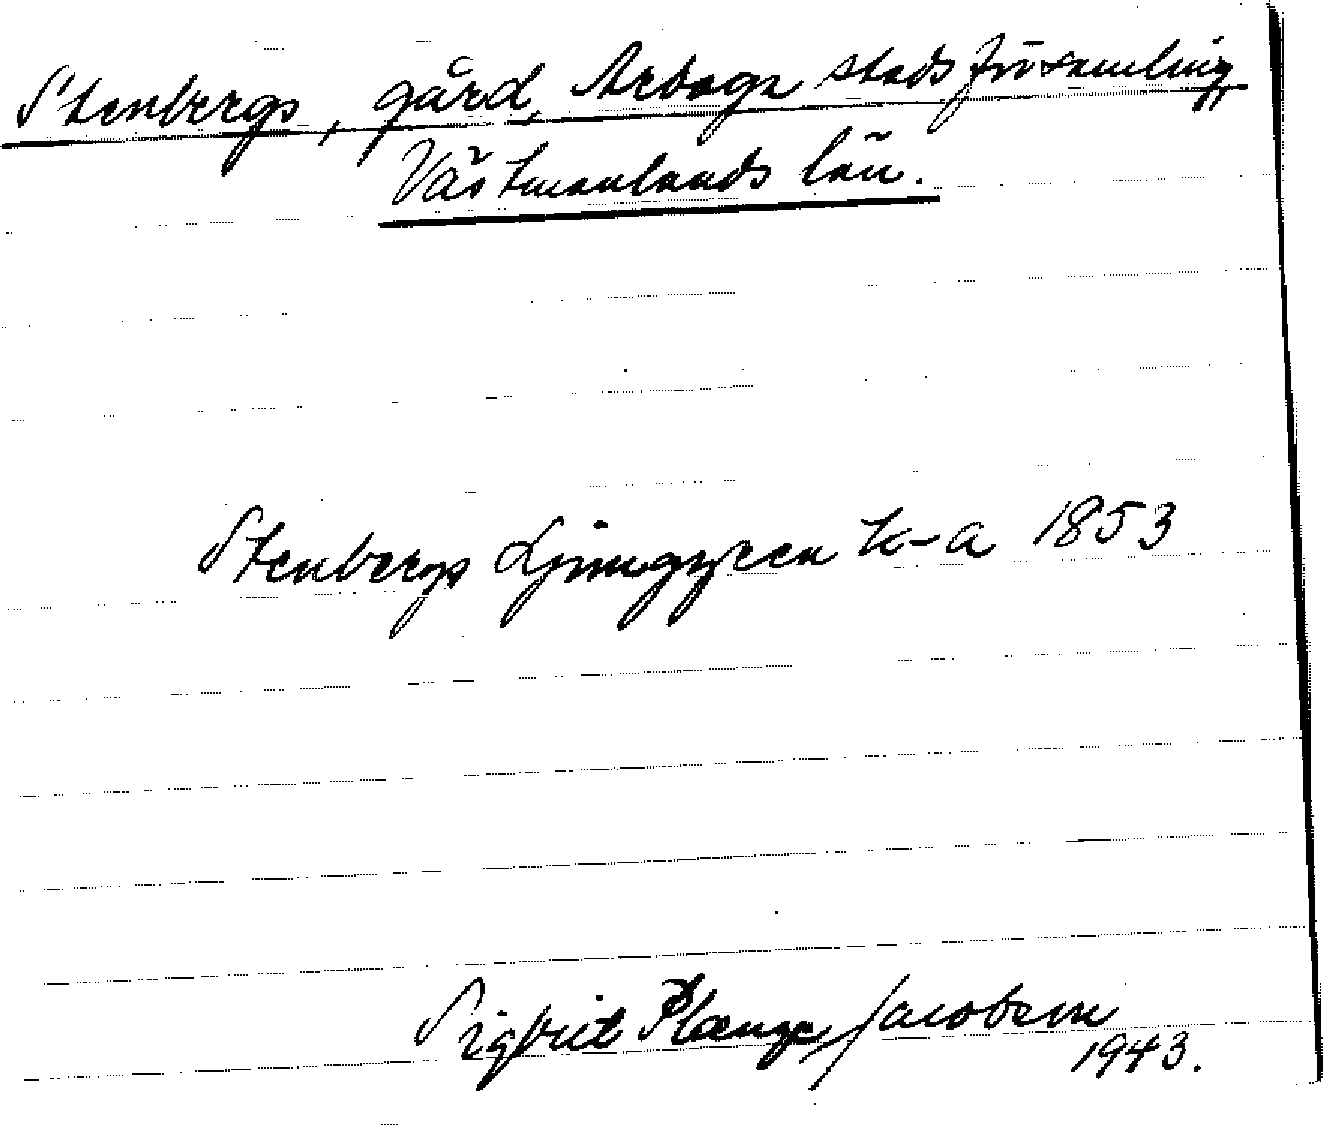 Stenbergs, gård, Arboga stads församling,
Västmanlands län.
Stenbergs Ljunggren k-a 1853
Sigfrit Jacobson
1943.